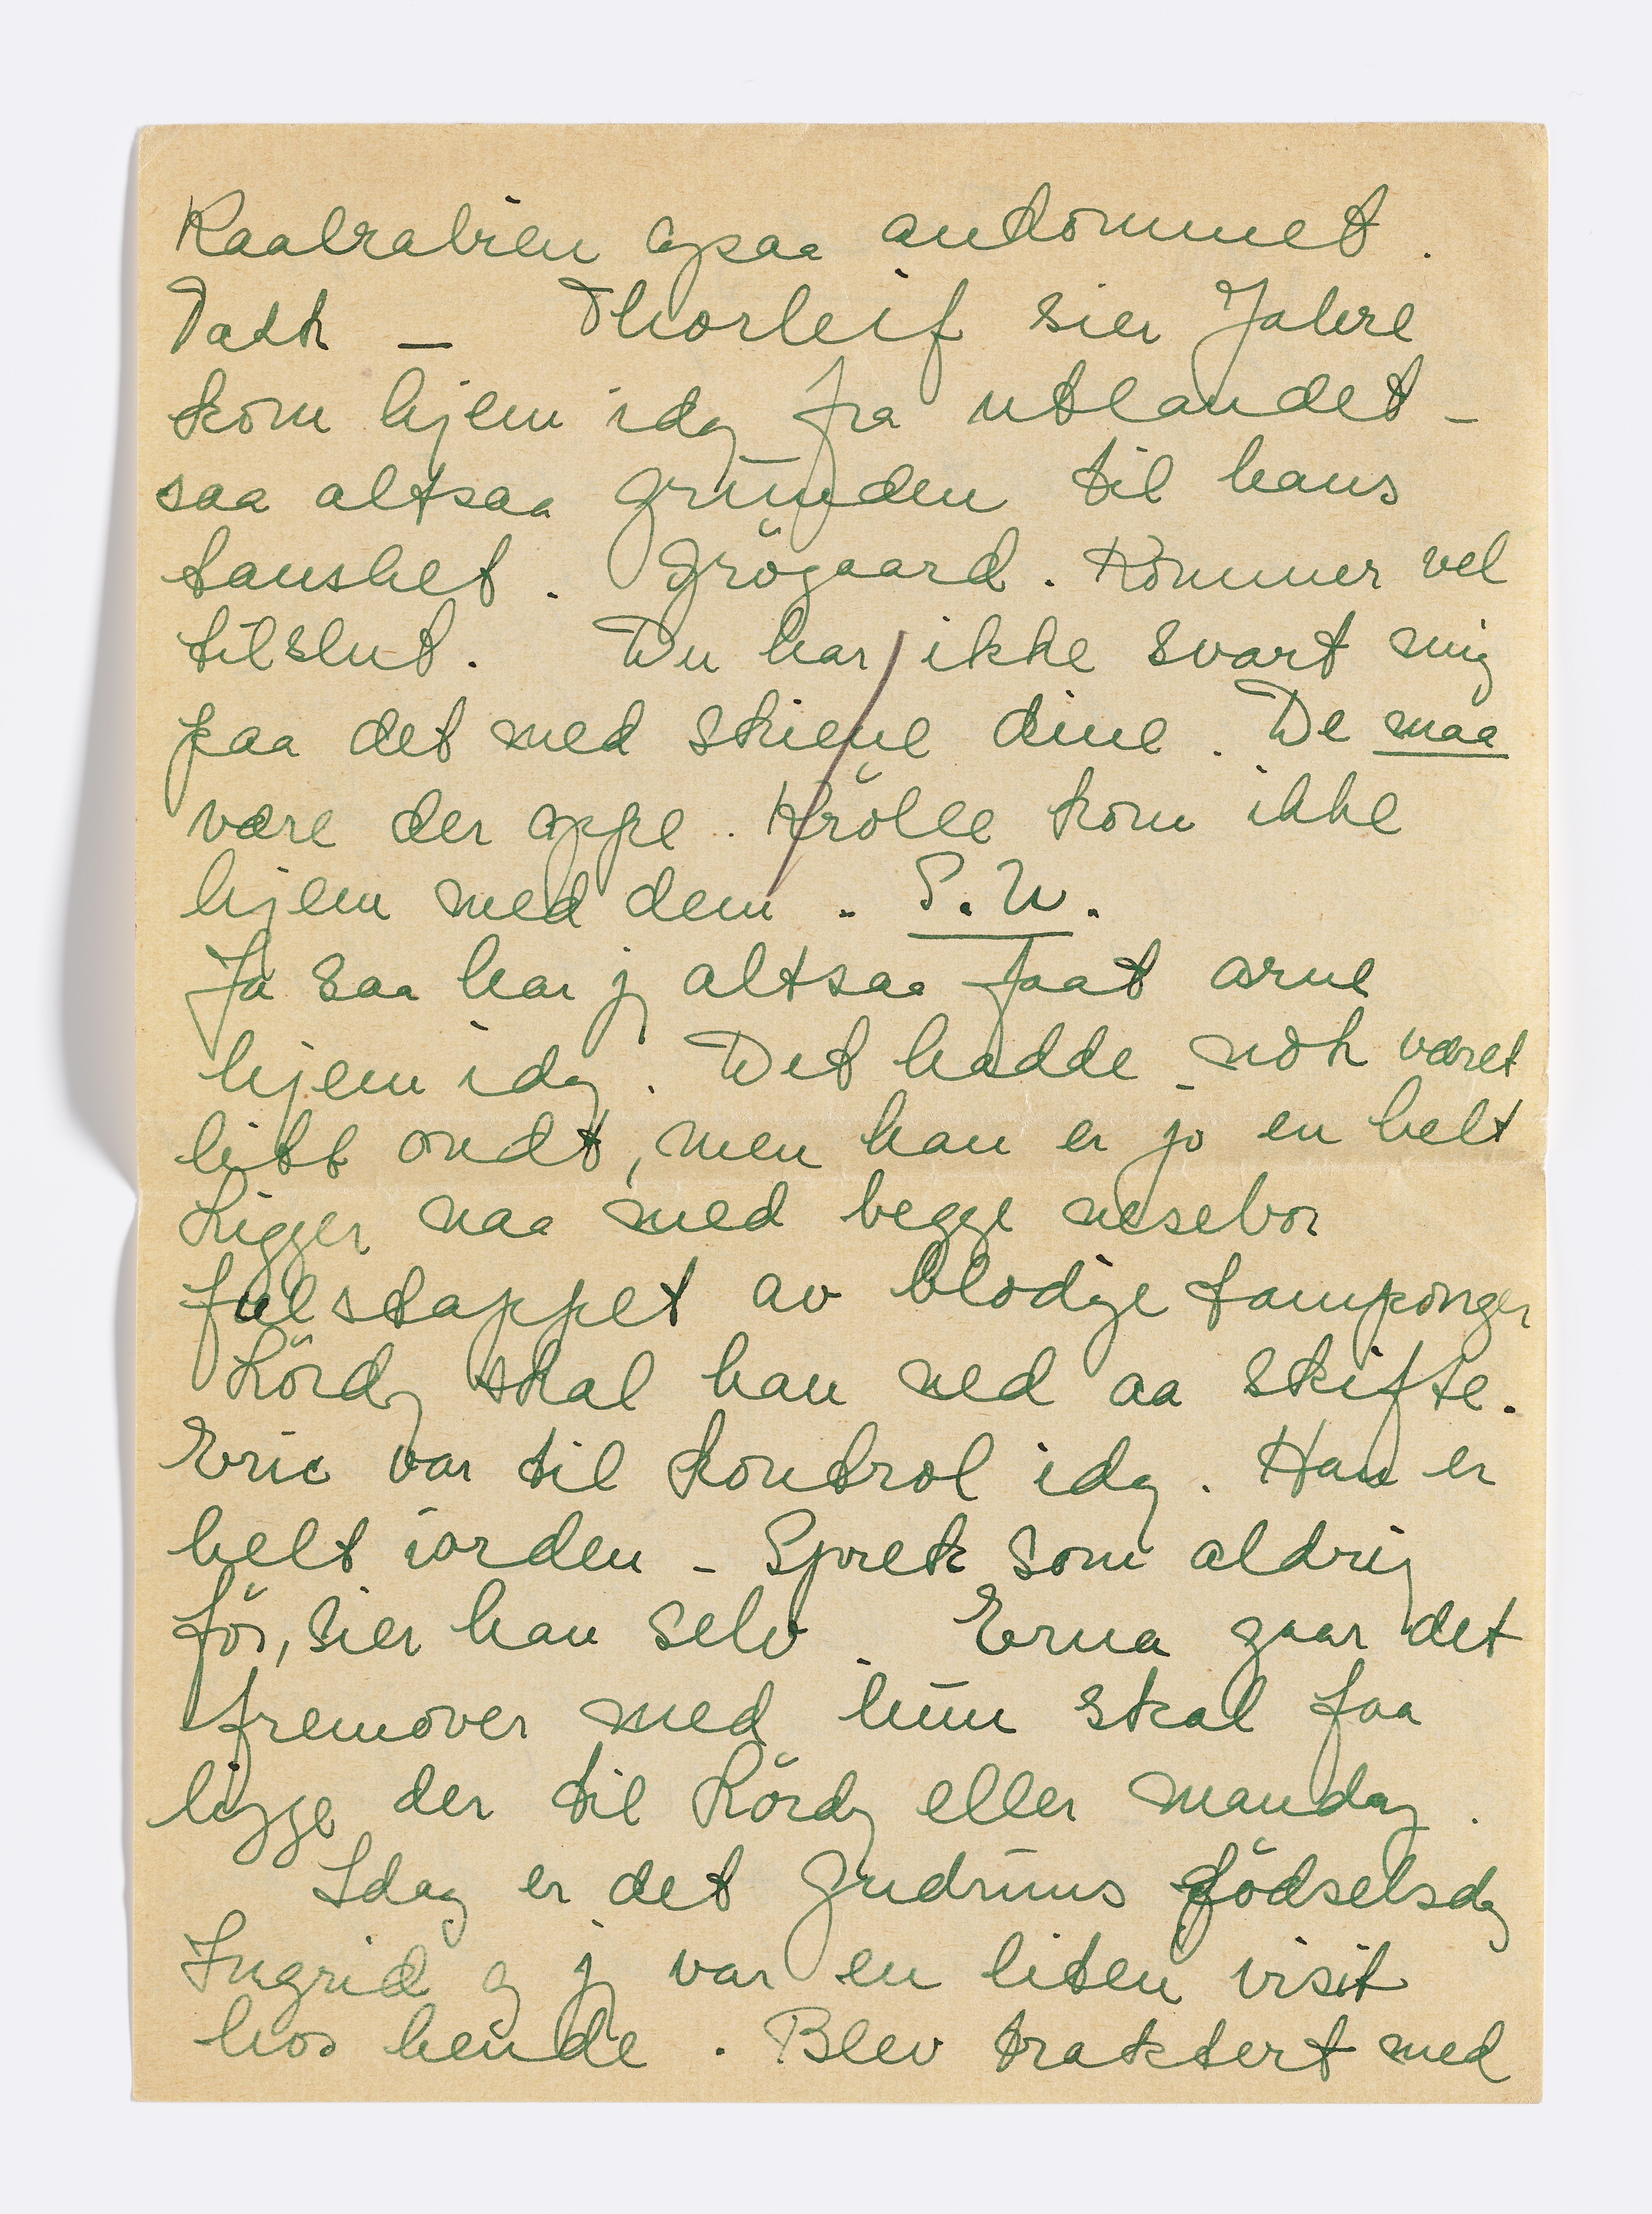 Kaalrabien ogsaa ankommet.
Takk — Thorleif sier Jahre
kom hjem idag fra utlandet -
saa altsaa grunden til hans
taushet. Grögaard. Kommer vel
tilslut. Du har ikke svart mig
paa det med skiene dine. De maa
være der oppe. Krölle kom ikke
hjem med dem. S.U.
Ja saa har jeg altsaa faat Arne
hjem idag. Det hadde nok været
litt ondt, men han er jo en helt
Ligger naa med begge nesebor
fulstappet av blodige tamponger
Lördag skal han ned aa skifte.
Eric var til kontrol idag. Han er
helt iorden - Sprek som aldrig
för, sier han selv. Erna gaar det
fremover med hun skal faa
ligge der til Lördag eller mandag.
Idag er det Gudruns födselsdag
Ingrid og jeg var en liten visit
hos hende. Blev traktert med